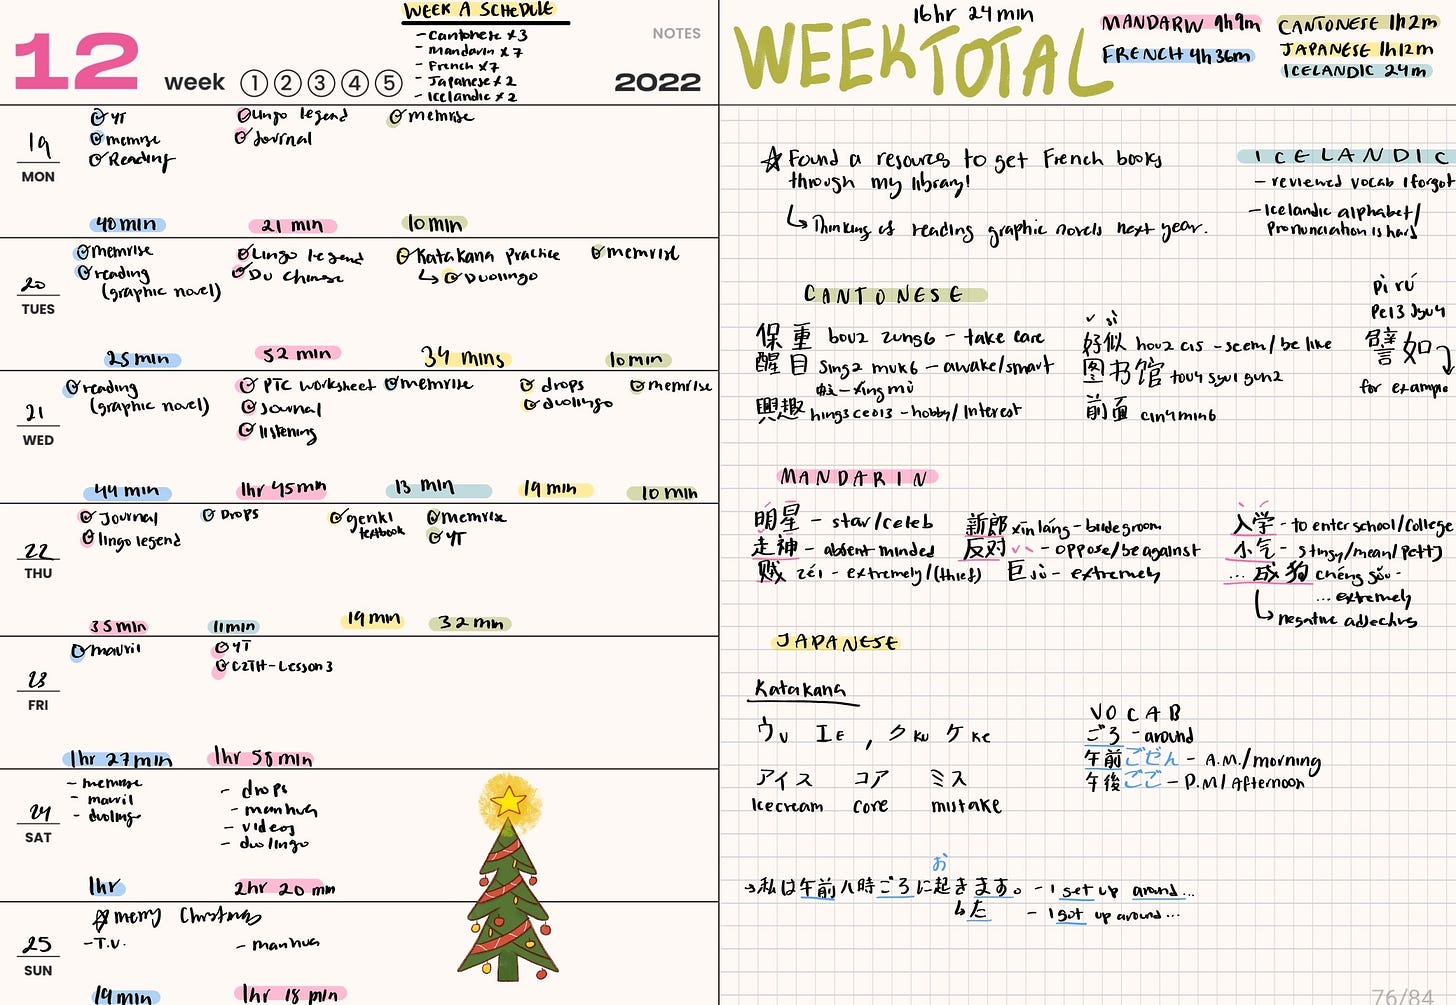 WEEK A SCHEDULE
- Cantonese x3
- Mandarin x7
- French x7
- Japanese x2
- Icelandic x2
12
week 1 2 3 4 5
NOTES
2022
19
MON
YT
memrise
Reading
40 min
Lingo legend
Journal
21 min
memrise
10 min
20
TUES
memrise
reading
(graphic novel)
25 min
Lingo legend
Du Chinese
52 min
Katakana Practice
↳ Duolingo
34 mins
memrise
10 min
21
WED
reading
(graphic novel)
44 min
PTC worksheet
Journal
listening
1hr 45 min
memrise
13 min
drops
duolingo
19 min
memrise
10 min
22
THU
Journal
lingo legend
35 min
Drops
11 min
genki
textbook
19 min
memrise
YT
32 min
23
FRI
mauril
1hr 27 min
YT
C2TH - Lesson 3
1hr 58 min
24
SAT
- memrise
- mauril
- duolingo
1hr
- drops
- manhua
- videos
- duolingo
2hr 20 min
25
SUN
☆ merry Christmas
- T.V.
19 min
- manhua
1hr 18 min
16hr 24min
WEEK TOTAL
MANDARIN 9h9m
FRENCH 4h36m
CANTONESE 1h2m
JAPANESE 1h12m
ICELANDIC 24m
☆ Found a resource to get French books
through my library!
↳ Thinking of reading graphic novels next year.
ICELANDIC
- reviewed vocab I forgot
- Icelandic alphabet/
Pronunciation is hard
CANTONESE
保重 bou2 zung6 - take care
醒目 sing2 muk6 - awake/smart
- xǐng mù
興趣 hing3 ceoi3 - hobby/interest
好似 hou2 ci5 - seem/be like
sì
图书馆 tou4 syu1 gun2
前面 cin4 min6
pì rú
pei3 jyu4
譬如
for example
MANDARIN
明星 - star/celeb
走神 - absent minded
贼 zéi - extremely/(thief)
新郎 xīn láng - bridegroom
反对 - oppose/be against
巨 jù - extremely
入学 - to enter school/College
小气 - stingy/mean/petty
... 成狗 chéng gǒu -
... extremely
↳ negative adjectives
JAPANESE
Katakana
ウ U エ E , ク KU ケ KE
アイス コア ミス
Icecream core mistake
VOCAB
ごろ - around
午前 ごぜん - A.M./morning
午後 ごご - P.M/Afternoon
お
→ 私は午前八時ごろに起きます。 - I get up around...
↳ た - I got up around...
76/84